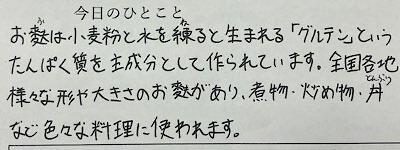 今日のひとこと
お麩は小麦粉と水を練ると生まれる「グルテン」という
たんぱく質を主成分として作られています。全国各地
様々な形や大きさのお麩があり、煮物・炒め物・丼
など色々な料理に使われます。